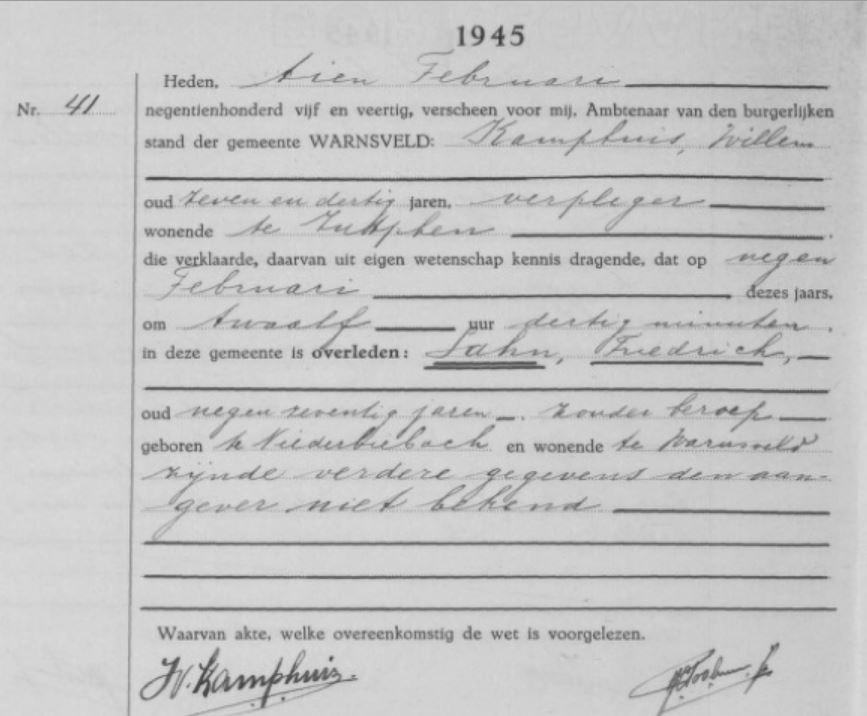 1945
Heden, tien Februari
Nr. 41 negentienhonderd vijf en veertig, verscheen voor mij, Ambtenaar van den burgerlijken
stand der gemeente WARNSVELD: Kamphuis, Willem
oud zeven en dertig jaren, verpleger
wonende te Zutphen
die verklaarde, daarvan uit eigen wetenschap kennis dragende, dat op negen
Februari dezes jaars,
om twaalf uur dertig minuten,
in deze gemeente is overleden: Lahn, Friedrich,
oud negen zeventig jaren zonder beroep
geboren te Niederbiebach en wonende te Warnsveld
zijnde verdere gegevens den aan-
gever niet bekend
Waarvan akte, welke overeenkomstig de wet is voorgelezen.
W. Kamphuis.